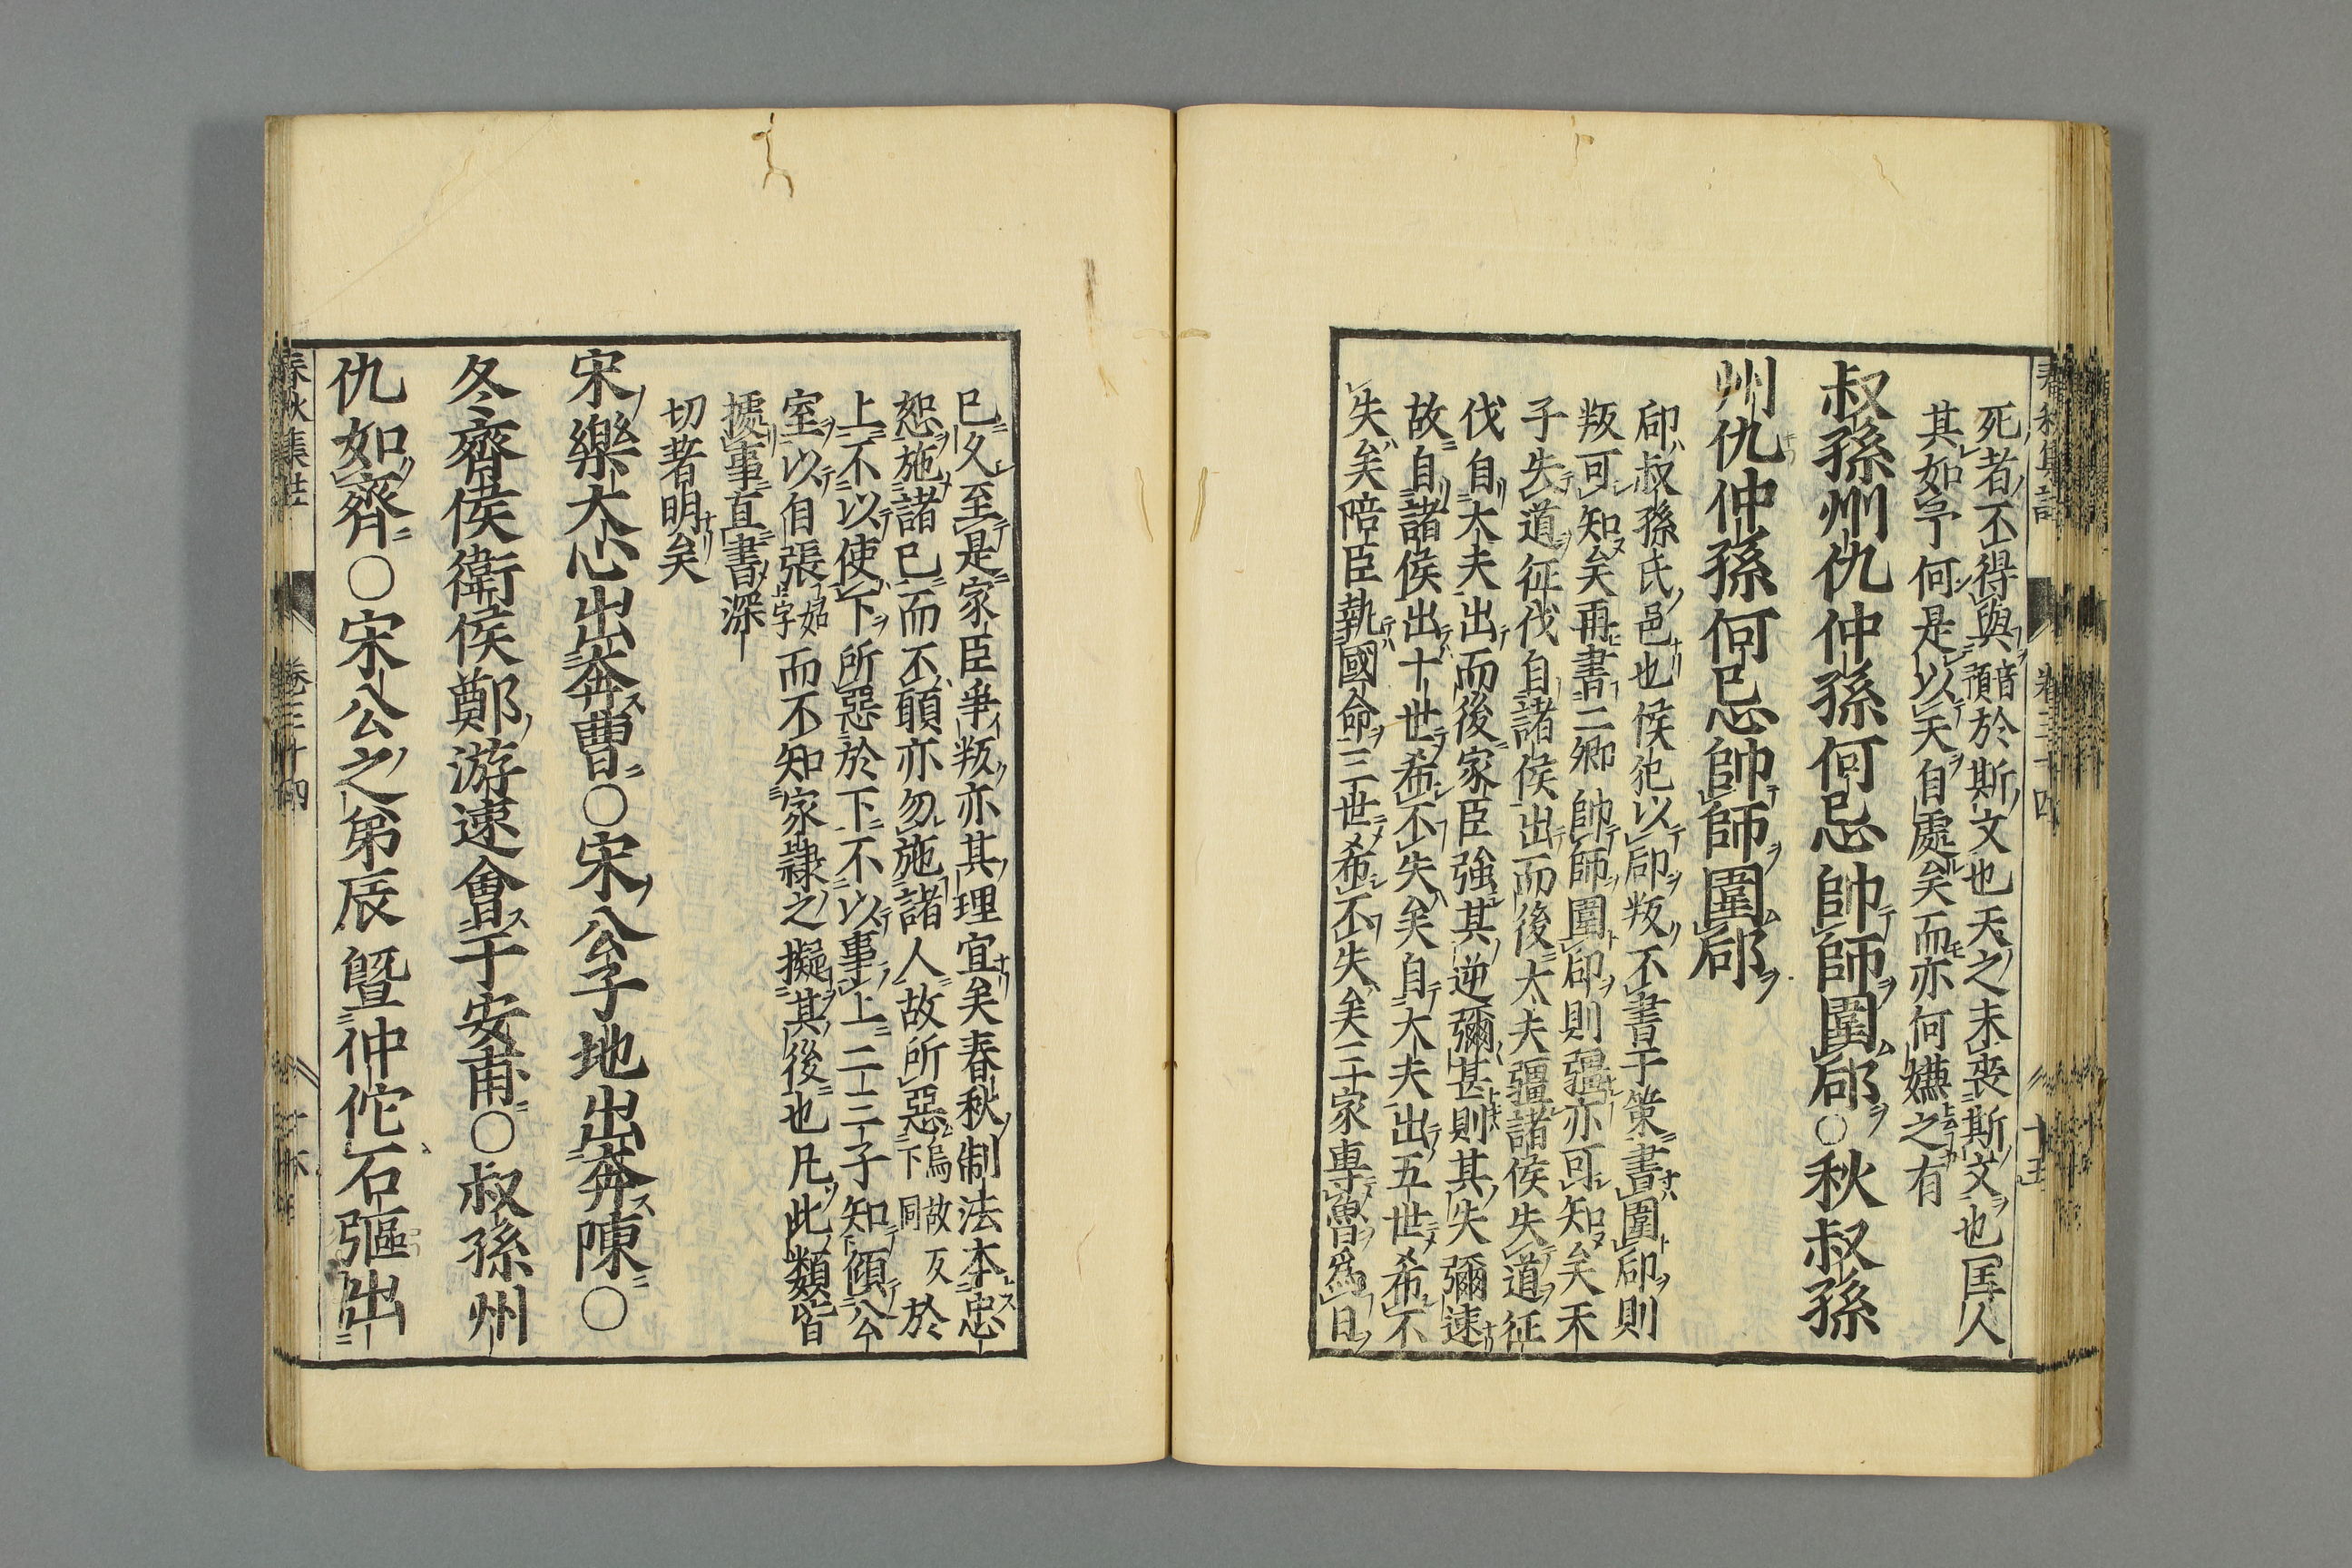 死者不得與音預於斯文也天之未喪斯文也匡人
其如予何是以天自處矣而亦何嫌之有
叔孫州仇仲孫何忌帥師圍郈○秋叔孫
州仇仲孫何忌帥師圍郈
郈叔孫氏邑也侯犯以郈叛不書于策書圍郈則
叛可知矣再書二卿帥師圍郈則彊亦可知矣天
子失道征伐自諸侯出而後大夫彊諸侯失道征
伐自大夫出而後家臣強其逆彌甚則其失彌速
故自諸侯出十世希不失矣自大夫出五世希不
失矣陪臣執國命三世希不失矣三家專魯為日
已久至是家臣爭叛亦其理宜矣春秋制法本忠
恕施諸已而不願亦勿施諸人故所惡烏故反下同於
上不以使下所惡於下不以事上二三子知傾公
室以自張如字而不知家隸之擬其後也凡此類皆
據事直書深
切著明矣
宋樂大心出奔曹○宋公子地出奔陳○
冬齊侯衛侯鄭游速會于安甫○叔孫州
仇如齊○宋公之弟辰暨仲佗石彄出
春秋集註　卷三十四